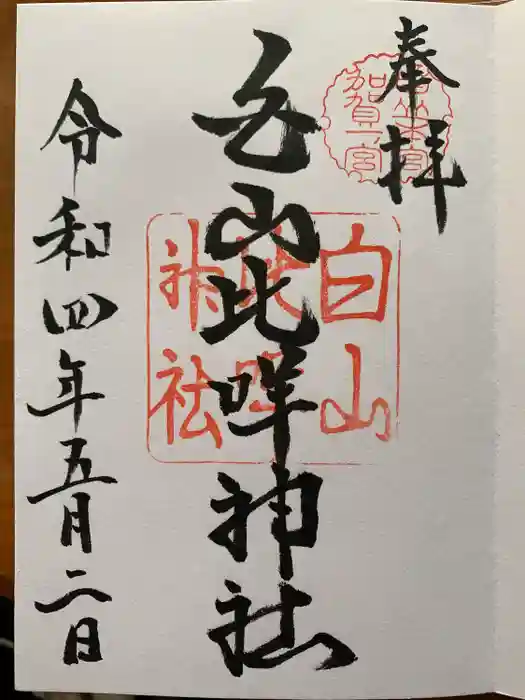 奉拝
加賀一宮
白山比咩神社
白山
比咩
神社
令和四年五月二日